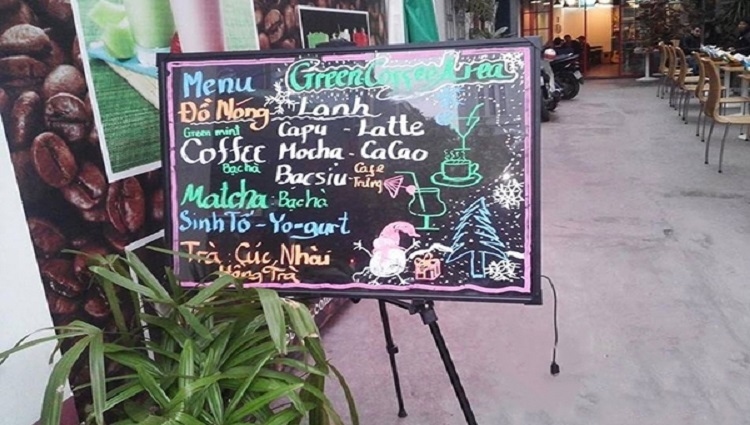 Menu Green Coffee Area
Đồ Nóng - Lạnh
Green mint Capu - Latte
Coffee Mocha - CaCao
Bạc hà Bacsiu - Cafe Trứng
Matcha Bạc hà
Sinh Tố - Yo-gurt
Trà Cúc Nhài
Hồng Trà